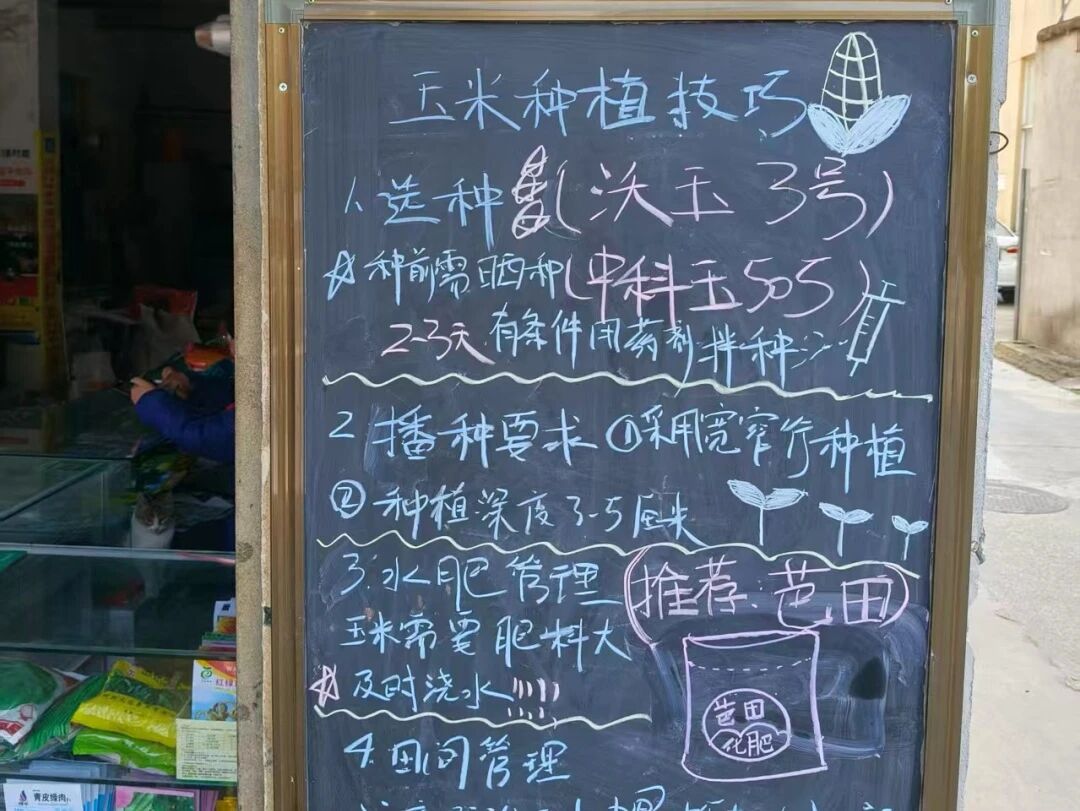 玉米种植技巧
1、选种(沃玉3号)
种前需晒种(中科玉505)
2-3天 有条件用药剂拌种
2 播种要求 ①采用宽窄行种植
②种植深度3-5厘米
3.水肥管理
推荐:芭田
玉米需要肥料大
及时浇水!!!!
芭田
化肥
4.田间管理
青皮缘肉